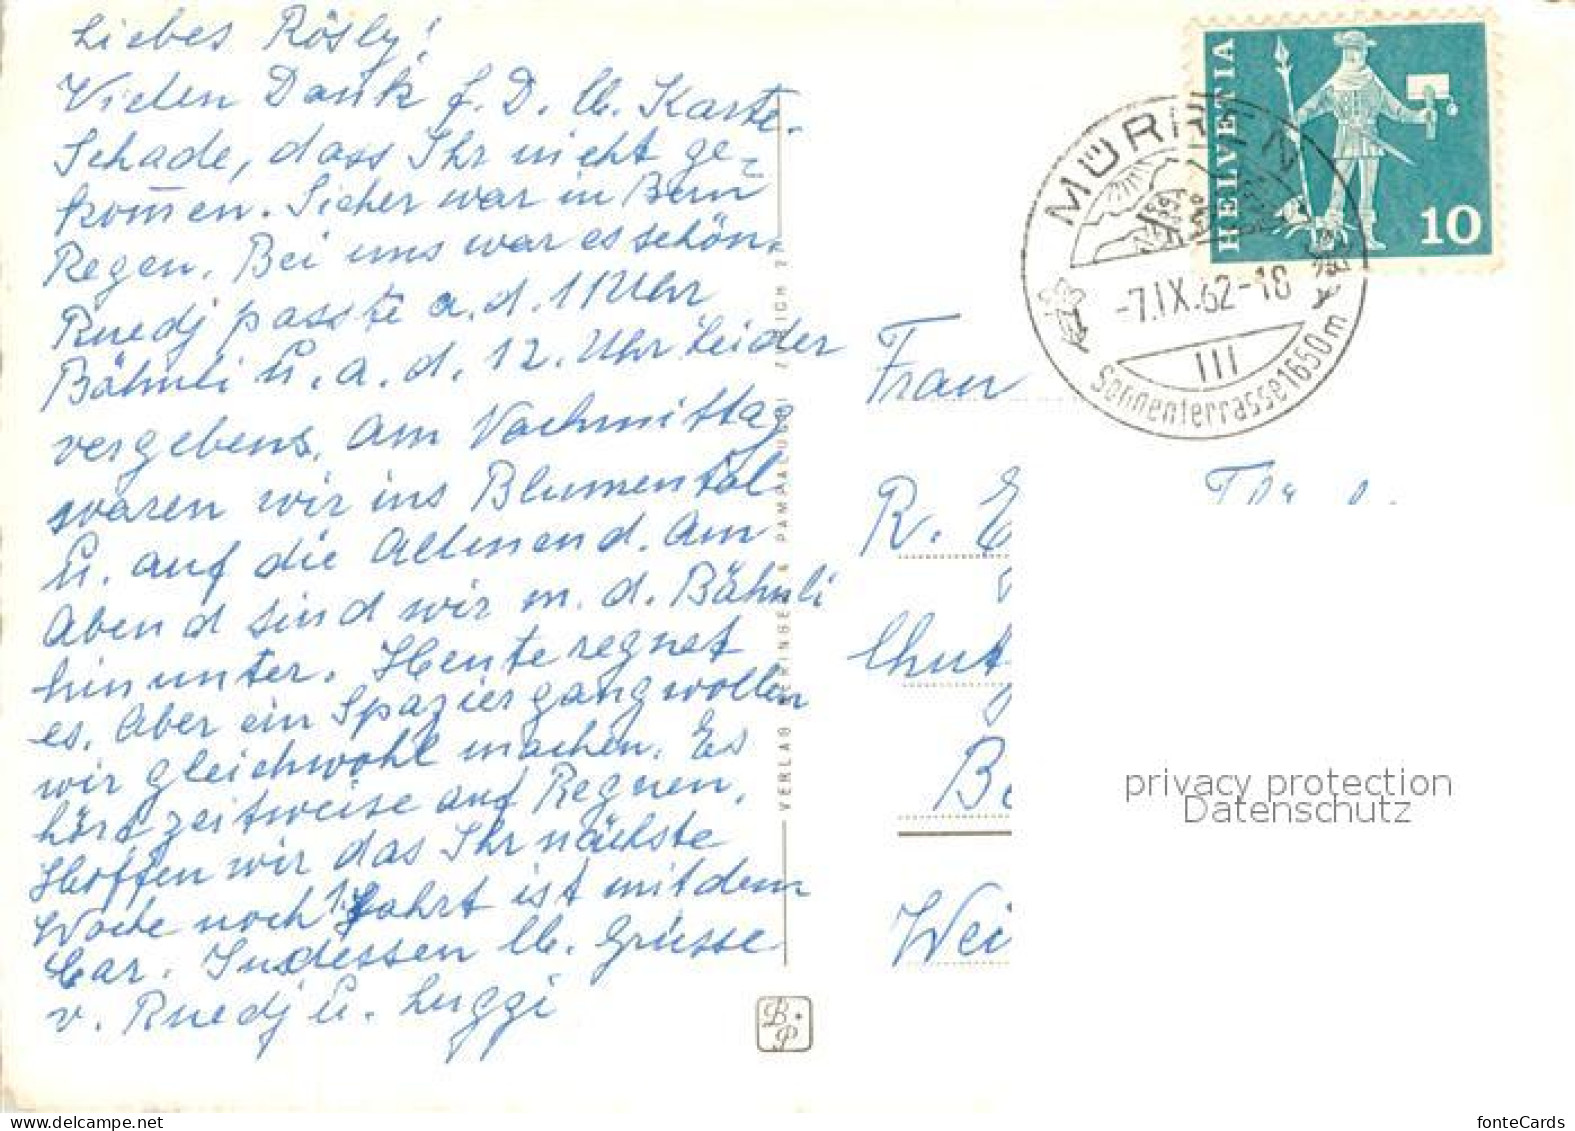 Liebes Rösly!
Vielen Dank f. D. lb. Karte.
Schade, dass Ihr nicht ge-
kommen. Sicher war in Bern
Regen. Bei uns war es schön.
Ruedj passte a. d. 11 Uhr
Bähnli u. a. d. 12. Uhr Leider
vergebens. Am Nachmittag
waren wir ins Blumental
u. auf die Allmend. Am
Abend sind wir m. d. Bähnli
hinunter. Heute regnet
es. Aber ein Spaziergang wollen
wir gleichwohl machen. Es
hört zeitweise auf Regnen.
Hoffen wir das Ihr nächste
Woche noch 1. Fahrt ist mit dem
Car. Indessen lb. Grüsse
v. Ruedj u. Luggi
VERLAG BERINGER & PAMPALUCHI ZÜRICH 7
B·P
HELVETIA
10
MÜRREN
-7.IX.62-18
III
Sonnenterrasse 1650m
Frau
R. E
Wei
privacy protection
Datenschutz
fonteCards